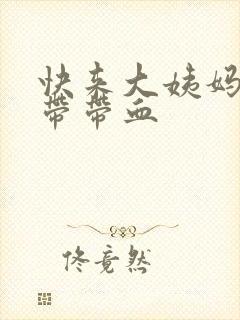 快来大姨妈
带带血
佟竟然